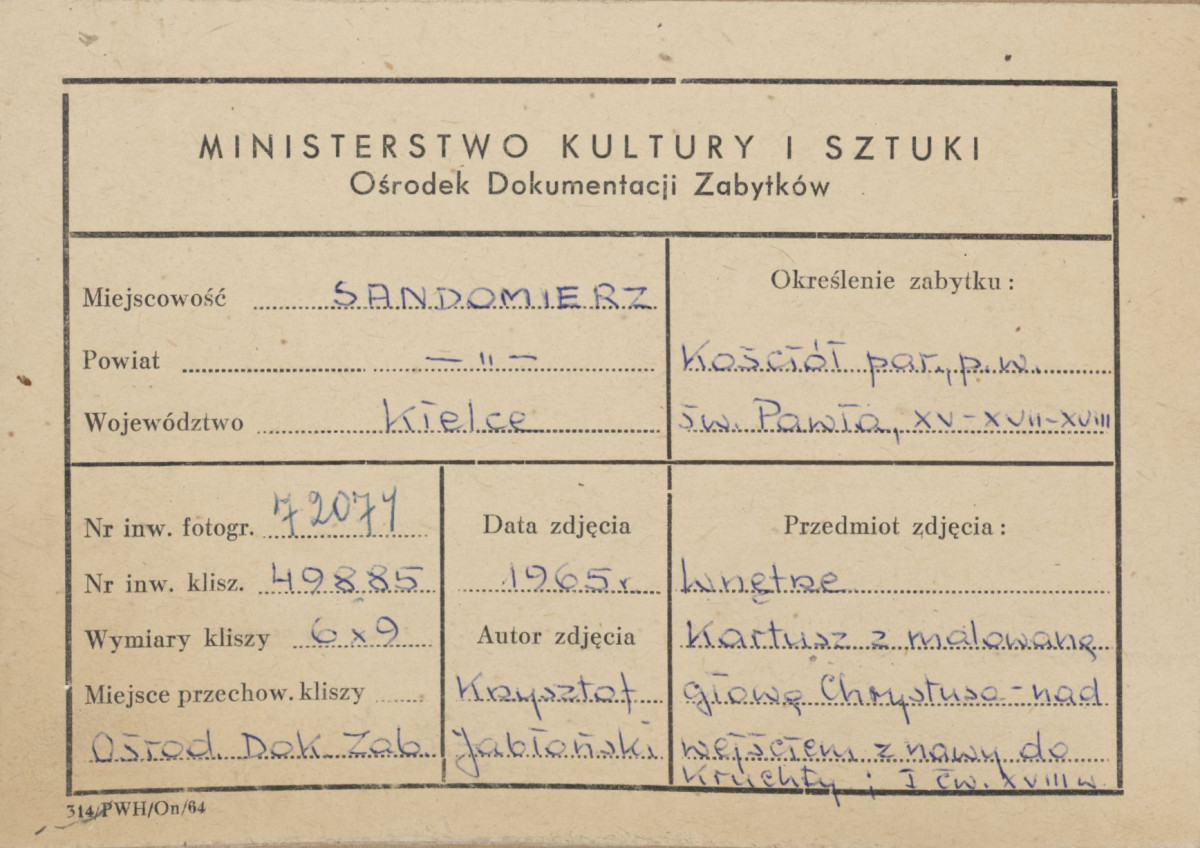 MINISTERSTWO KULTURY I SZTUKI
Ośrodek Dokumentacji Zabytków
Miejscowość SANDOMIERZ
Powiat — " —
Województwo Kielce
Określenie zabytku:
Kościół par., p.w.
św. Pawła, XV-XVII-XVIII
Nr inw. fotogr. 72071
Nr inw. klisz. 49885
Wymiary kliszy 6x9
Miejsce przechow. kliszy
Ośrod. Dok. Zab.
Data zdjęcia
1965r.
Autor zdjęcia
Krzysztof
Jabłoński
Przedmiot zdjęcia:
Wnętrze
Kartusz z malowaną
głową Chrystusa - nad
wejściem z nawy do
Kruchty; I ćw. XVIII w.
314/PWH/On/64